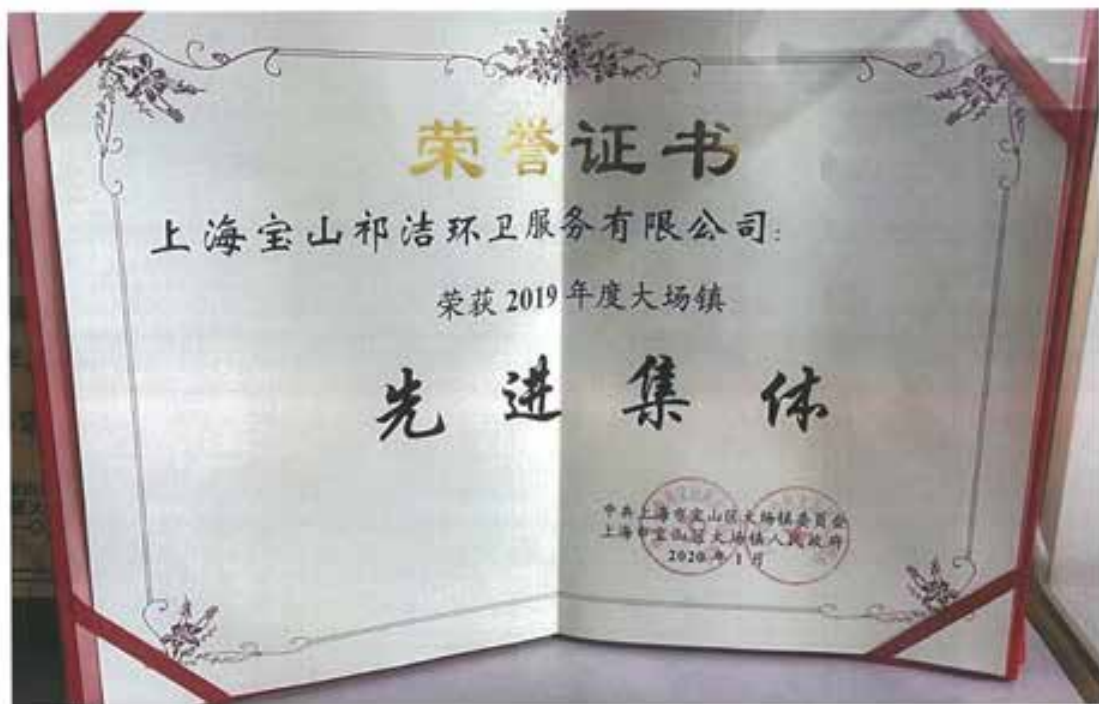 荣誉证书
上海宝山祁洁环卫服务有限公司:
荣获 2019 年度大场镇
先进集体
中共上海市宝山区大场镇委员会
上海市宝山区大场镇人民政府
2020 年 1 月